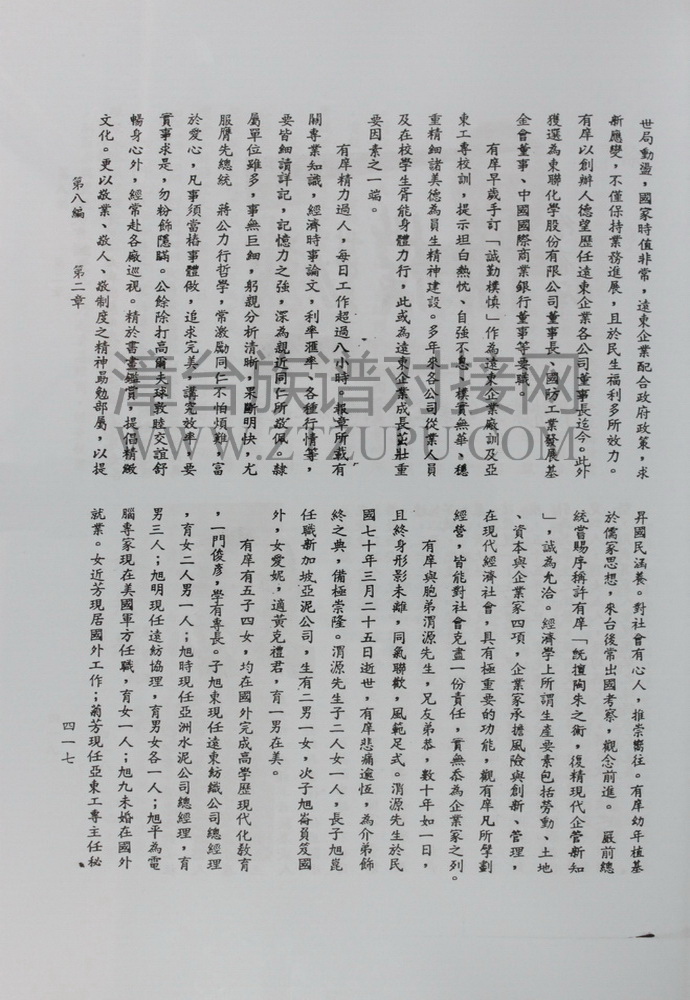 世局動盪，國家時值非常，遠東企業配合政府政策，求
新應變，不僅保持業務進展，且於民生福利多所效力。
有庠以創辦人德望歷任遠東企業各公司董事長迄今。此外
獲選為東聯化學股份有限公司董事長、國防工業發展基
金會董事、中國國際商業銀行董事等要職。
有庠早歲手訂「誠勤樸慎」作為遠東企業廠訓及亞
東工專校訓，提示坦白熱忱、自強不息、樸實無華、穩
重精細諸美德為員生精神建設。多年來各公司從業人員
及在校學生胥能身體力行，此或為遠東企業成長茁壯重
要因素之一端。
有庠精力過人，每日工作超過八小時。報章所載有
關專業知識，經濟時事論文，利率匯率、各種行情等，
要皆細讀詳記，記憶力之強，深為親近同仁所敬佩。隸
屬單位雖多，事無巨細，躬親分析清晰，果斷明快，尤
服膺先總統　蔣公力行哲學，常激勵同仁不怕煩難，富
於愛心，凡事須當樁事體做，追求完美，講究效率，要
實事求是，勿粉飾隱瞞。公餘除打高爾夫球敦睦交誼舒
暢身心外，經常赴各廠巡視。精於書畫鑑賞，提倡精緻
文化。更以敬業、敬人、敬制度之精神勗勉部屬，以提
第八編　第二章
昇國民涵養。對社會有心人，推崇嚮往。有庠幼年植基
於儒家思想，來台後常出國考察，觀念前進。　嚴前總
統嘗賜序稱許有庠「既擅陶朱之術，復精現代企管新知
」，誠為允洽。經濟學上所謂生產要素包括勞動、土地
、資本與企業家四項，企業家承擔風險與創新、管理，
在現代經濟社會，具有極重要的功能，觀有庠凡所擘劃
經營，皆能對社會克盡一份責任，實無忝為企業家之列。
有庠與胞弟渭源先生，兄友弟恭，數十年如一日，
且終身形影未離，同氣聯歡，風範足式。渭源先生於民
國七十年三月二十五日逝世，有庠悲痛逾恆，為介弟飾
終之典，備極崇隆。渭源先生子二人女一人，長子旭崑
任職新加坡亞泥公司，生有二男一女，次子旭崙員笈國
外，女愛妮，適黃克禮君，育一男在美。
有庠有五子四女，均在國外完成高學歷現代化教育
，一門俊彥，學有專長。子旭東現任遠東紡織公司總經理
，育女二人男一人；旭時現任亞洲水泥公司總經理，育
男三人；旭明現任遠紡協理，育男女各一人；旭平為電
腦專家現在美國軍方任職，育女一人；旭九未婚在國外
就業。女近芳現居國外工作；菊芳現任亞東工專主任秘
四一七
漳台族谱对接网
WWW.ZTZUPU.COM